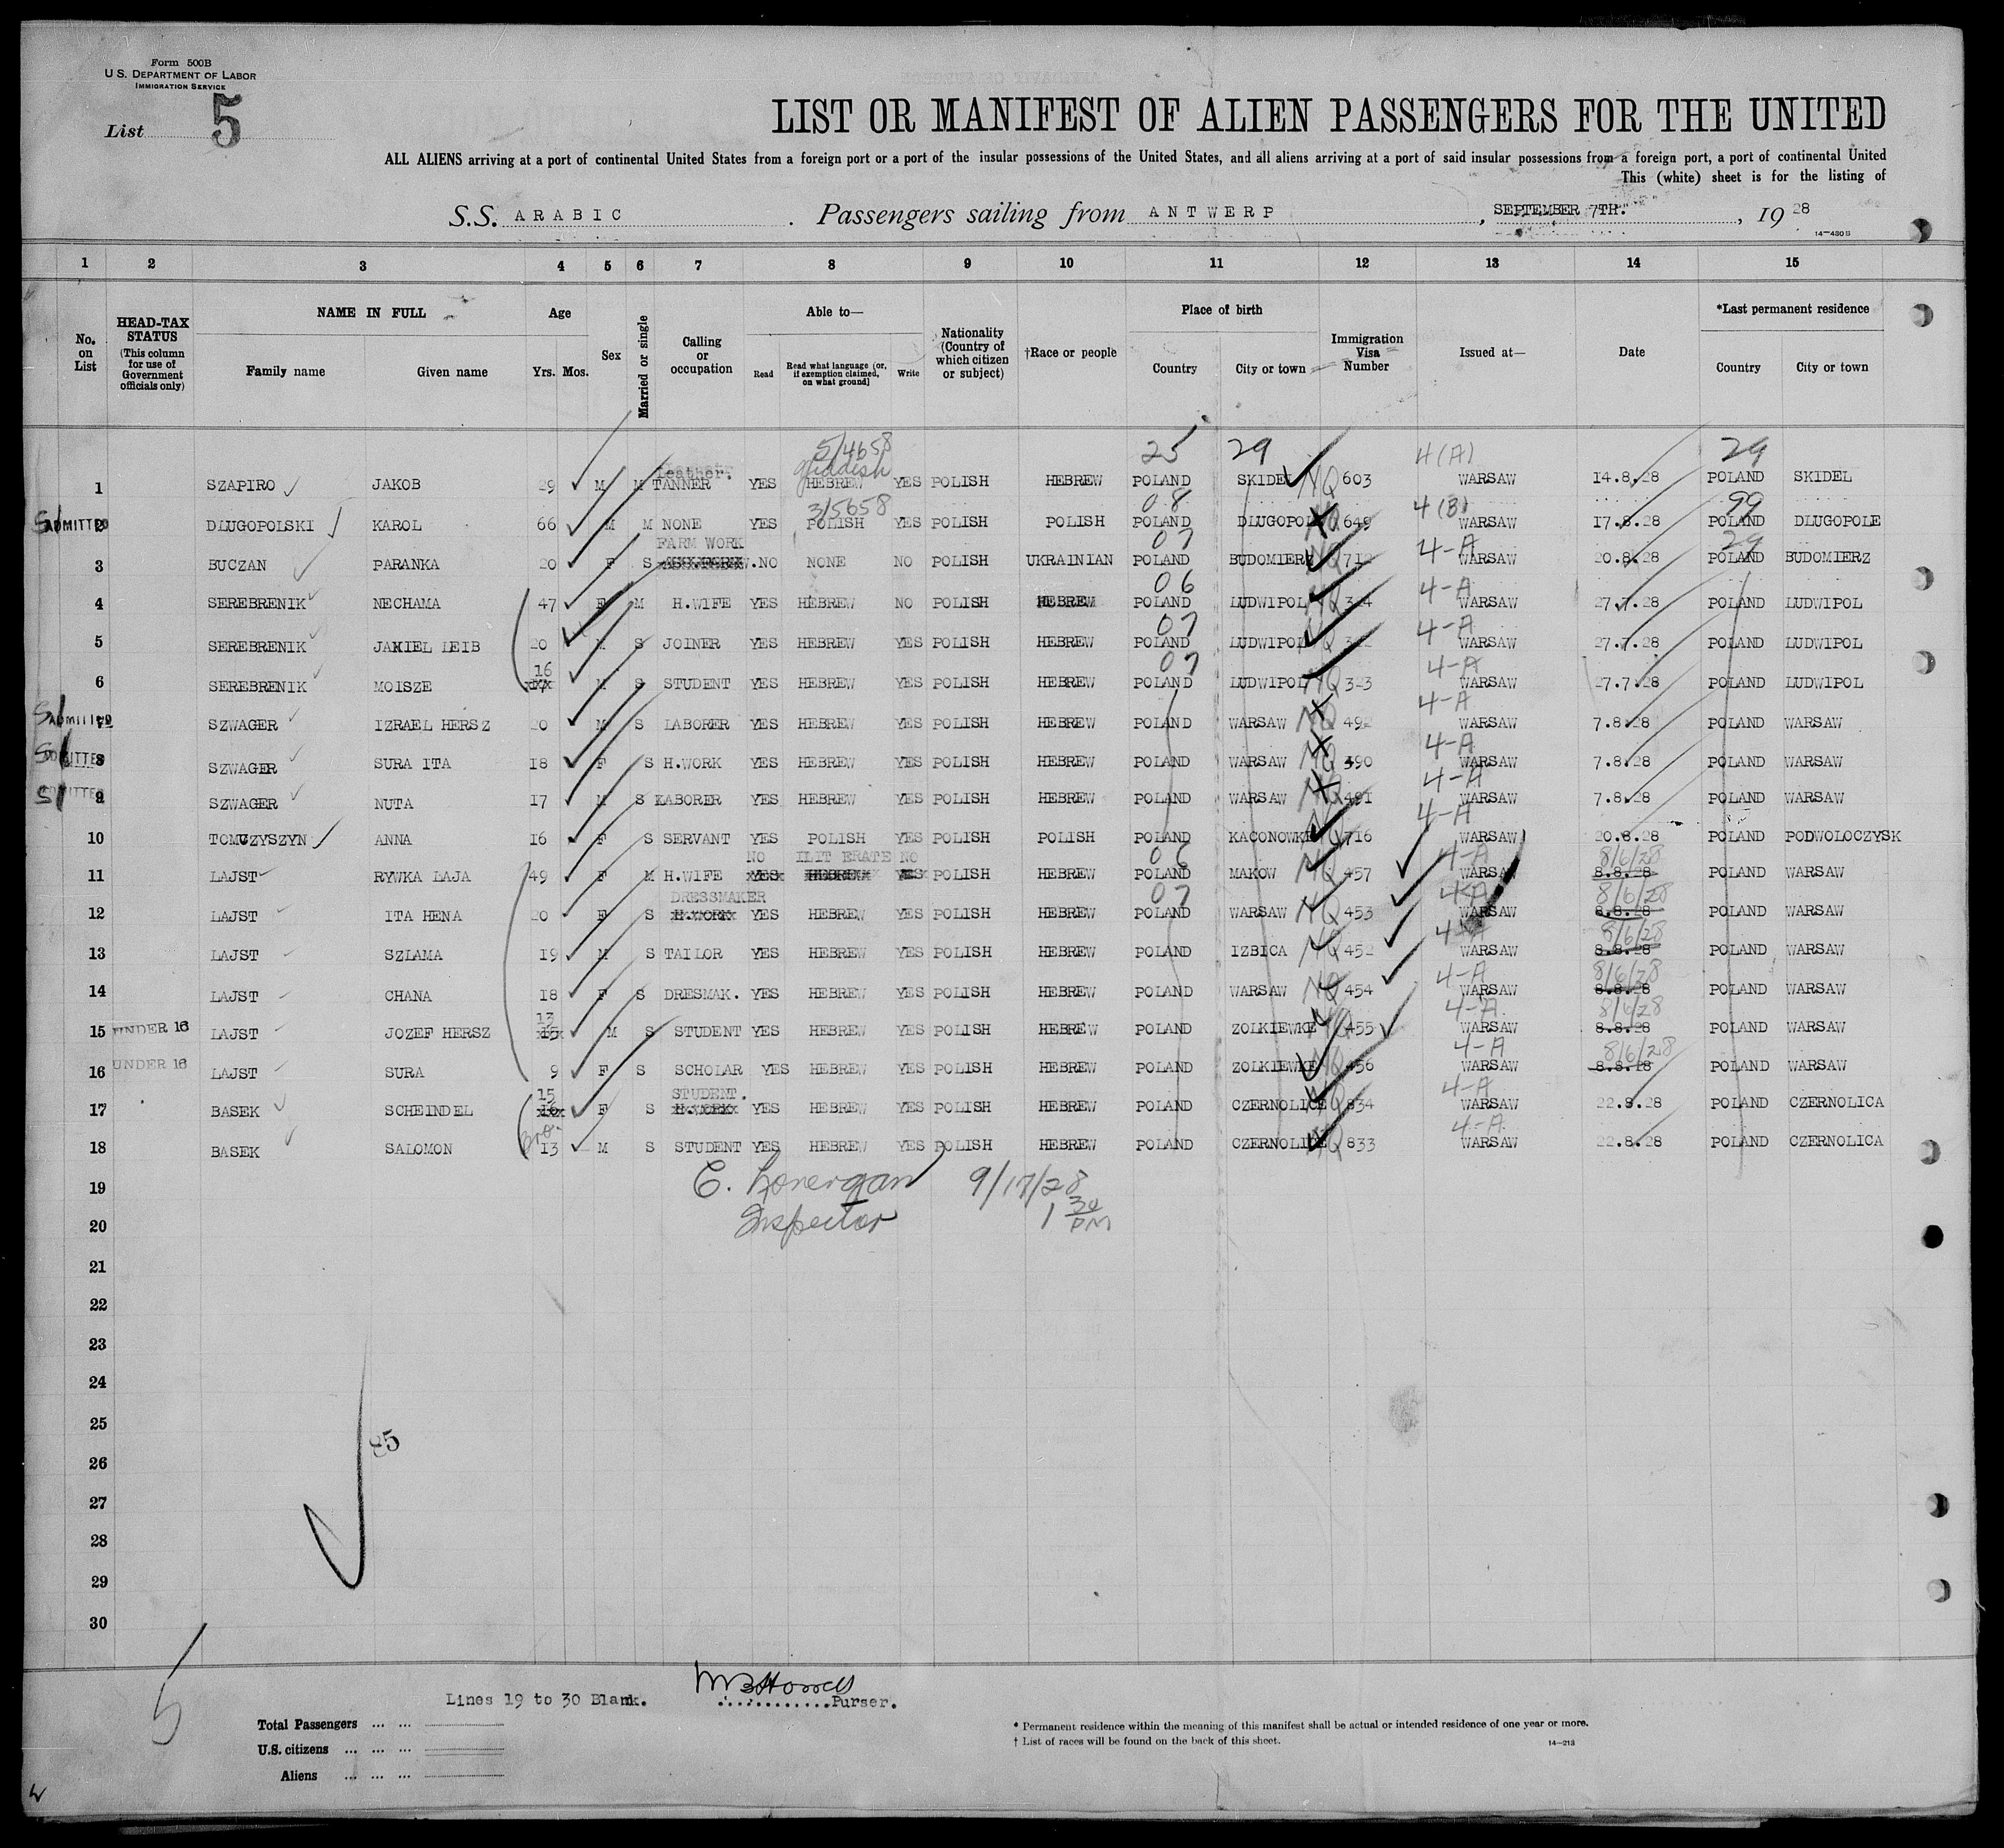 Form 500B
U.S. DEPARTMENT OF LABOR
IMMIGRATION SERVICE
List 5
LIST OR MANIFEST OF ALIEN PASSENGERS FOR THE UNITED
ALL ALIENS arriving at a port of continental United States from a foreign port or a port of the insular possessions of the United States, and all aliens arriving at a port of said insular possessions from a foreign port, a port of continental United
This (white) sheet is for the listing of
S.S. ARABIC. Passengers sailing from ANTWERP, SEPTEMBER 7TH., 1928
14-430B
1 2 3 4 5 6 7 8 9 10 11 12 13 14 15
No. on List
HEAD-TAX STATUS (This column for use of Government officials only)
NAME IN FULL
Family name Given name
Age
Yrs. Mos.
Sex
Married or single
Calling or occupation
Able to—
Read
Read what language (or, if exemption claimed, on what ground)
Write
Nationality (Country of which citizen or subject)
†Race or people
Place of birth
Country City or town
Immigration Visa Number
Issued at—
Date
*Last permanent residence
Country City or town
5/4658 25 29 4(A) 29
Leather. Yiddish
1 SZAPIRO JAKOB 29 M M TANNER YES HEBREW YES POLISH HEBREW POLAND SKIDEL NQ 603 WARSAW 14.8.28 POLAND SKIDEL
3/5658 08 4(B) 99
ADMITTED 2 DLUGOPOLSKI KAROL 66 M M NONE YES POLISH YES POLISH POLISH POLAND DLUGOPOL 649 WARSAW 17.8.28 POLAND DLUGOPOLE
FARM WORK 07 4-A 29
3 BUCZAN PARANKA 20 F S NO NONE NO POLISH UKRAINIAN POLAND BUDOMIERZ NQ 712 WARSAW 20.8.28 POLAND BUDOMIERZ
06 4-A
4 SEREBRENIK NECHAMA 47 F M H.WIFE YES HEBREW NO POLISH HEBREW POLAND LUDWIPOL NQ WARSAW 27.7.28 POLAND LUDWIPOL
07 4-A
5 SEREBRENIK JANKIEL LEIB 20 M S JOINER YES HEBREW YES POLISH HEBREW POLAND LUDWIPOL NQ WARSAW 27.7.28 POLAND LUDWIPOL
16 07 4-A
6 SEREBRENIK MOISZE M S STUDENT YES HEBREW YES POLISH HEBREW POLAND LUDWIPOL NQ 323 WARSAW 27.7.28 POLAND LUDWIPOL
4-A
SI ADMITTED 7 SZWAGER IZRAEL HERSZ 20 M S LABORER YES HEBREW YES POLISH HEBREW POLAND WARSAW NQ 492 WARSAW 7.8.28 POLAND WARSAW
4-A
SI ADMITTED 8 SZWAGER SURA ITA 18 F S H.WORK YES HEBREW YES POLISH HEBREW POLAND WARSAW NQ 390 WARSAW 7.8.28 POLAND WARSAW
4-A
SI ADMITTED 9 SZWAGER NUTA 17 M S LABORER YES HEBREW YES POLISH HEBREW POLAND WARSAW NQ 491 WARSAW 7.8.28 POLAND WARSAW
4-A
10 TOMCZYSZYN ANNA 16 F S SERVANT YES POLISH YES POLISH POLISH POLAND KACONOWKE NQ 716 WARSAW 20.8.28 POLAND PODWOLOCZYSK
NO ILIT ERATE NO 06 4-A 8/6/28
11 LAJST RYWKA LAJA 49 F M H.WIFE YES HEBREW YES POLISH HEBREW POLAND MAKOW NQ 457 WARSAW 8.8.28 POLAND WARSAW
DRESSMAKER 07 4-A 8/6/28
12 LAJST ITA HENA 20 F S H.WORK YES HEBREW YES POLISH HEBREW POLAND WARSAW NQ 453 WARSAW 8.8.28 POLAND WARSAW
4-A 8/6/28
13 LAJST SZLAMA 19 M S TAILOR YES HEBREW YES POLISH HEBREW POLAND IZBICA NQ 452 WARSAW 8.8.28 POLAND WARSAW
4-A 8/6/28
14 LAJST CHANA 18 F S DRESMAK. YES HEBREW YES POLISH HEBREW POLAND WARSAW NQ 454 WARSAW 8.8.28 POLAND WARSAW
13 4-A 8/6/28
15 UNDER 16 LAJST JOZEF HERSZ 15 M S STUDENT YES HEBREW YES POLISH HEBREW POLAND ZOLKIEWKE NQ 455 WARSAW 8.8.28 POLAND WARSAW
4-A 8/6/28
16 UNDER 16 LAJST SURA 9 F S SCHOLAR YES HEBREW YES POLISH HEBREW POLAND ZOLKIEWKE NQ 456 WARSAW 8.8.28 POLAND WARSAW
15 STUDENT. 4-A
17 BASEK SCHEINDEL 16 F S H.WORK YES HEBREW YES POLISH HEBREW POLAND CZERNOLICE NQ 834 WARSAW 22.8.28 POLAND CZERNOLICA
Bro. 4-A
18 BASEK SALOMON 13 M S STUDENT YES HEBREW YES POLISH HEBREW POLAND CZERNOLICE NQ 833 WARSAW 22.8.28 POLAND CZERNOLICA
19 C. Lonergan 9/17/28
20 Inspector 1 30 PM
21
22
23
24
25
85
26
27
28
29
30
5
Lines 19 to 30 Blank. Purser.
Total Passengers
U.S. citizens
Aliens
* Permanent residence within the meaning of this manifest shall be actual or intended residence of one year or more.
† List of races will be found on the back of this sheet.
14-213